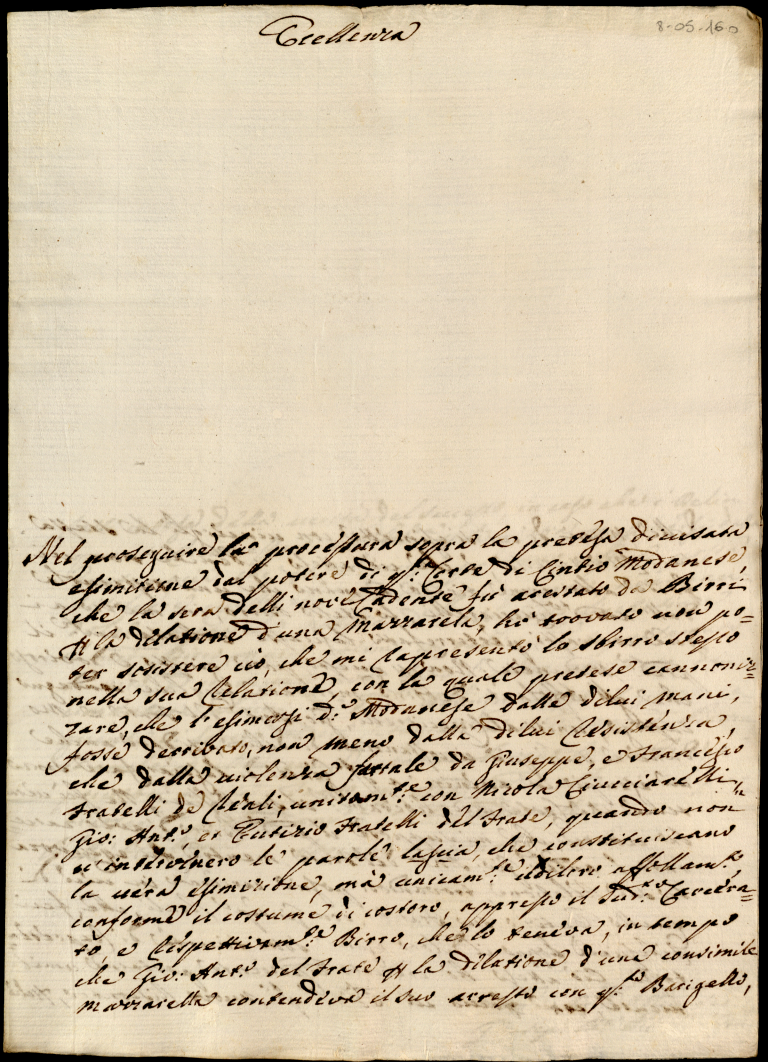 Eccellenza
8-05-160
Nel proseguire la processura sopra la pretesa divisata
esimizione dal potere di q.ta Corte di Cintio Modanese,
che la sera delli nove Cadente fù arestato da Birri
p la dilatione d'una Mazzarela, hò trovato non po=
ter sosistere ciò, che mi rapresentò lo sbirro stesso
nella sua relatione, con la quale pretese cannoni=
zare, che l'esimersi d.o Modanese dalle dilui mani,
fosse derribato, non meno dalla dilui resistenza,
che dalla violenza fattale da Giuseppe, e Francesco
fratelli de reali, unitam.te con Nicola Ciucciarelli,
Gio: Ant.o, et Eutizio fratelli del frate, quando non
v'intervenero le parole lascia, che constituiscano
la vera esimizione, mà unicam.te affollam.to
conforme il costume di costoro, appresso il sud.to Carcera=
to, e respettivam.te Birro, che lo teneva, in tempo
che Gio: Ant.o del frate p la dilatione d'una consimile
mazzarella contendeva il suo arresto con q.to Barigello,